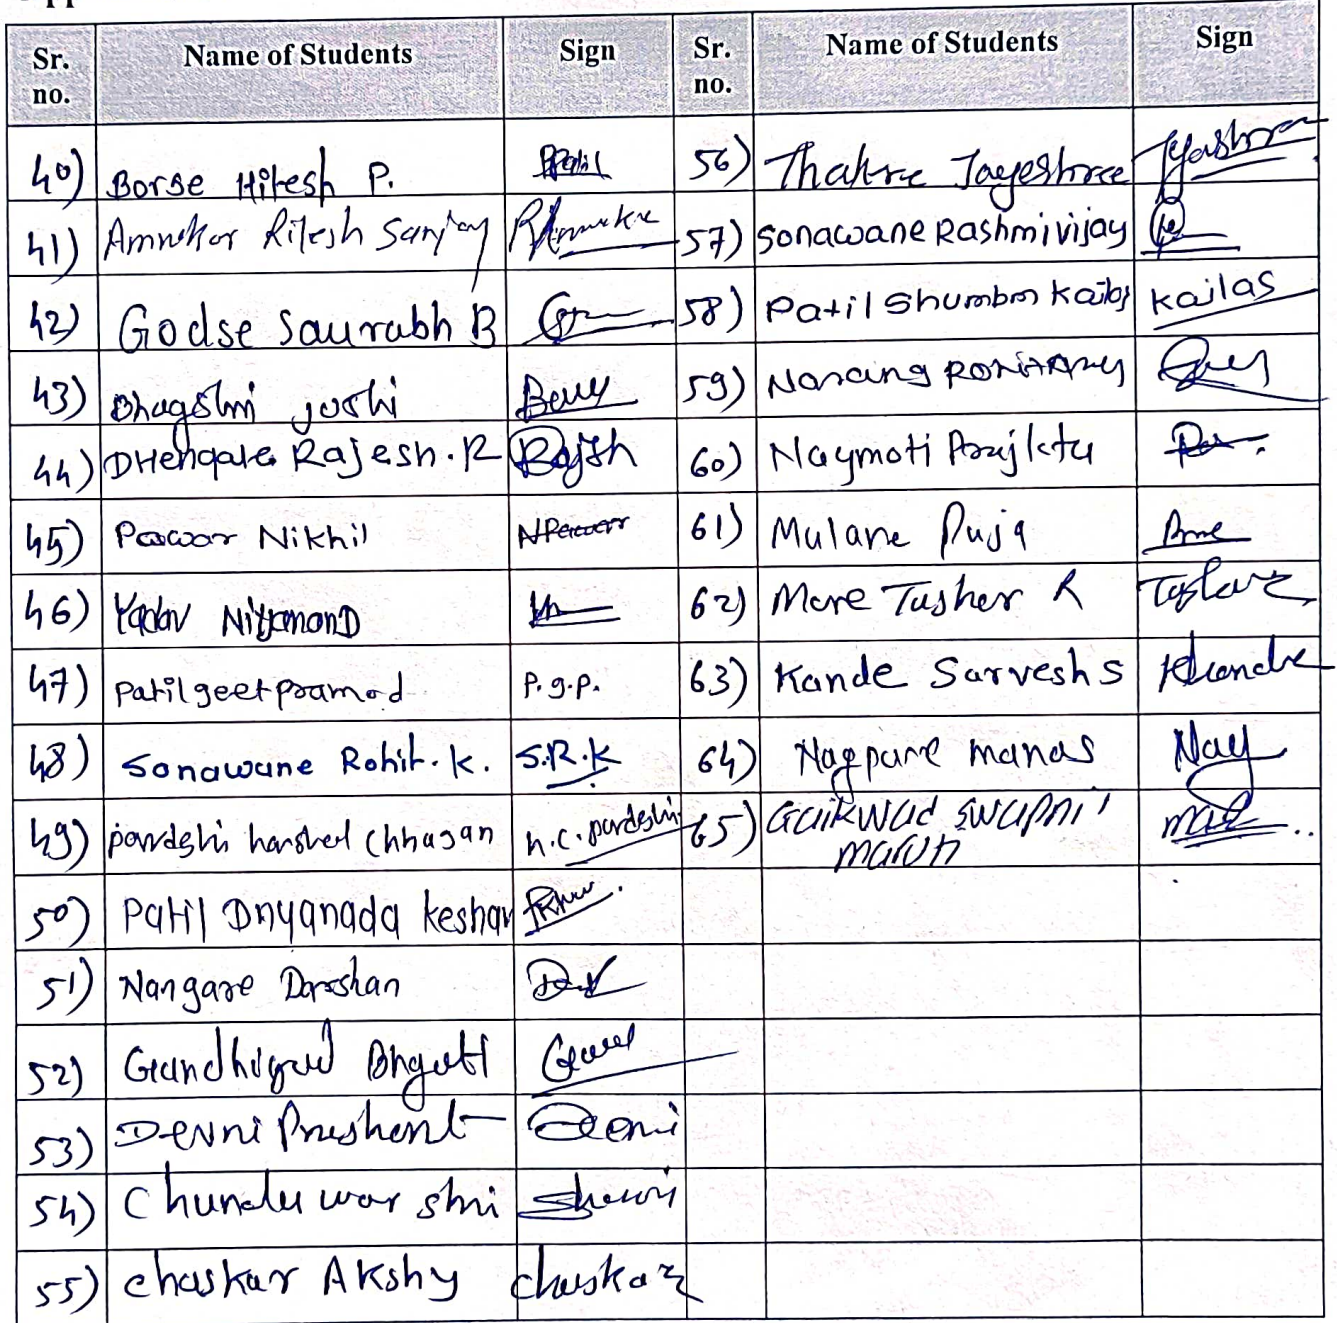 Sr. no. Name of Students Sign Sr. no. Name of Students Sign
40) Borse Hitesh P. 56) Thakre Jayeshree
41) Amnekar Ritesh Sanjay 57) Sonawane Rashmi vijay
42) Godse Saurabh B 58) Patil Shumbm Kailas kailas
43) Bhagshri joshi 59) Narang
44) DHengale Rajesh. R Rajsh 60) Naymoti Prajkta
45) Pawar Nikhil NPawar 61) Mulane Puja
46) Yadav NityananD 62) More Tusher R
47) patil geet pramod P.g.p. 63) Kande Sarvesh S
48) Sonawane Rohit. k. S.R.K 64) Nagpure manas Nag
49) pardeshi harshal Chhagan h.c. pardeshi 65) Gaikwad swapnil
maruti
50) Patil Dnyanada keshav
51) Nangare Darshan
52) Bhgati
53) Devni Prashant
54) Chundu war shri
55) chaskar Akshy chaskar